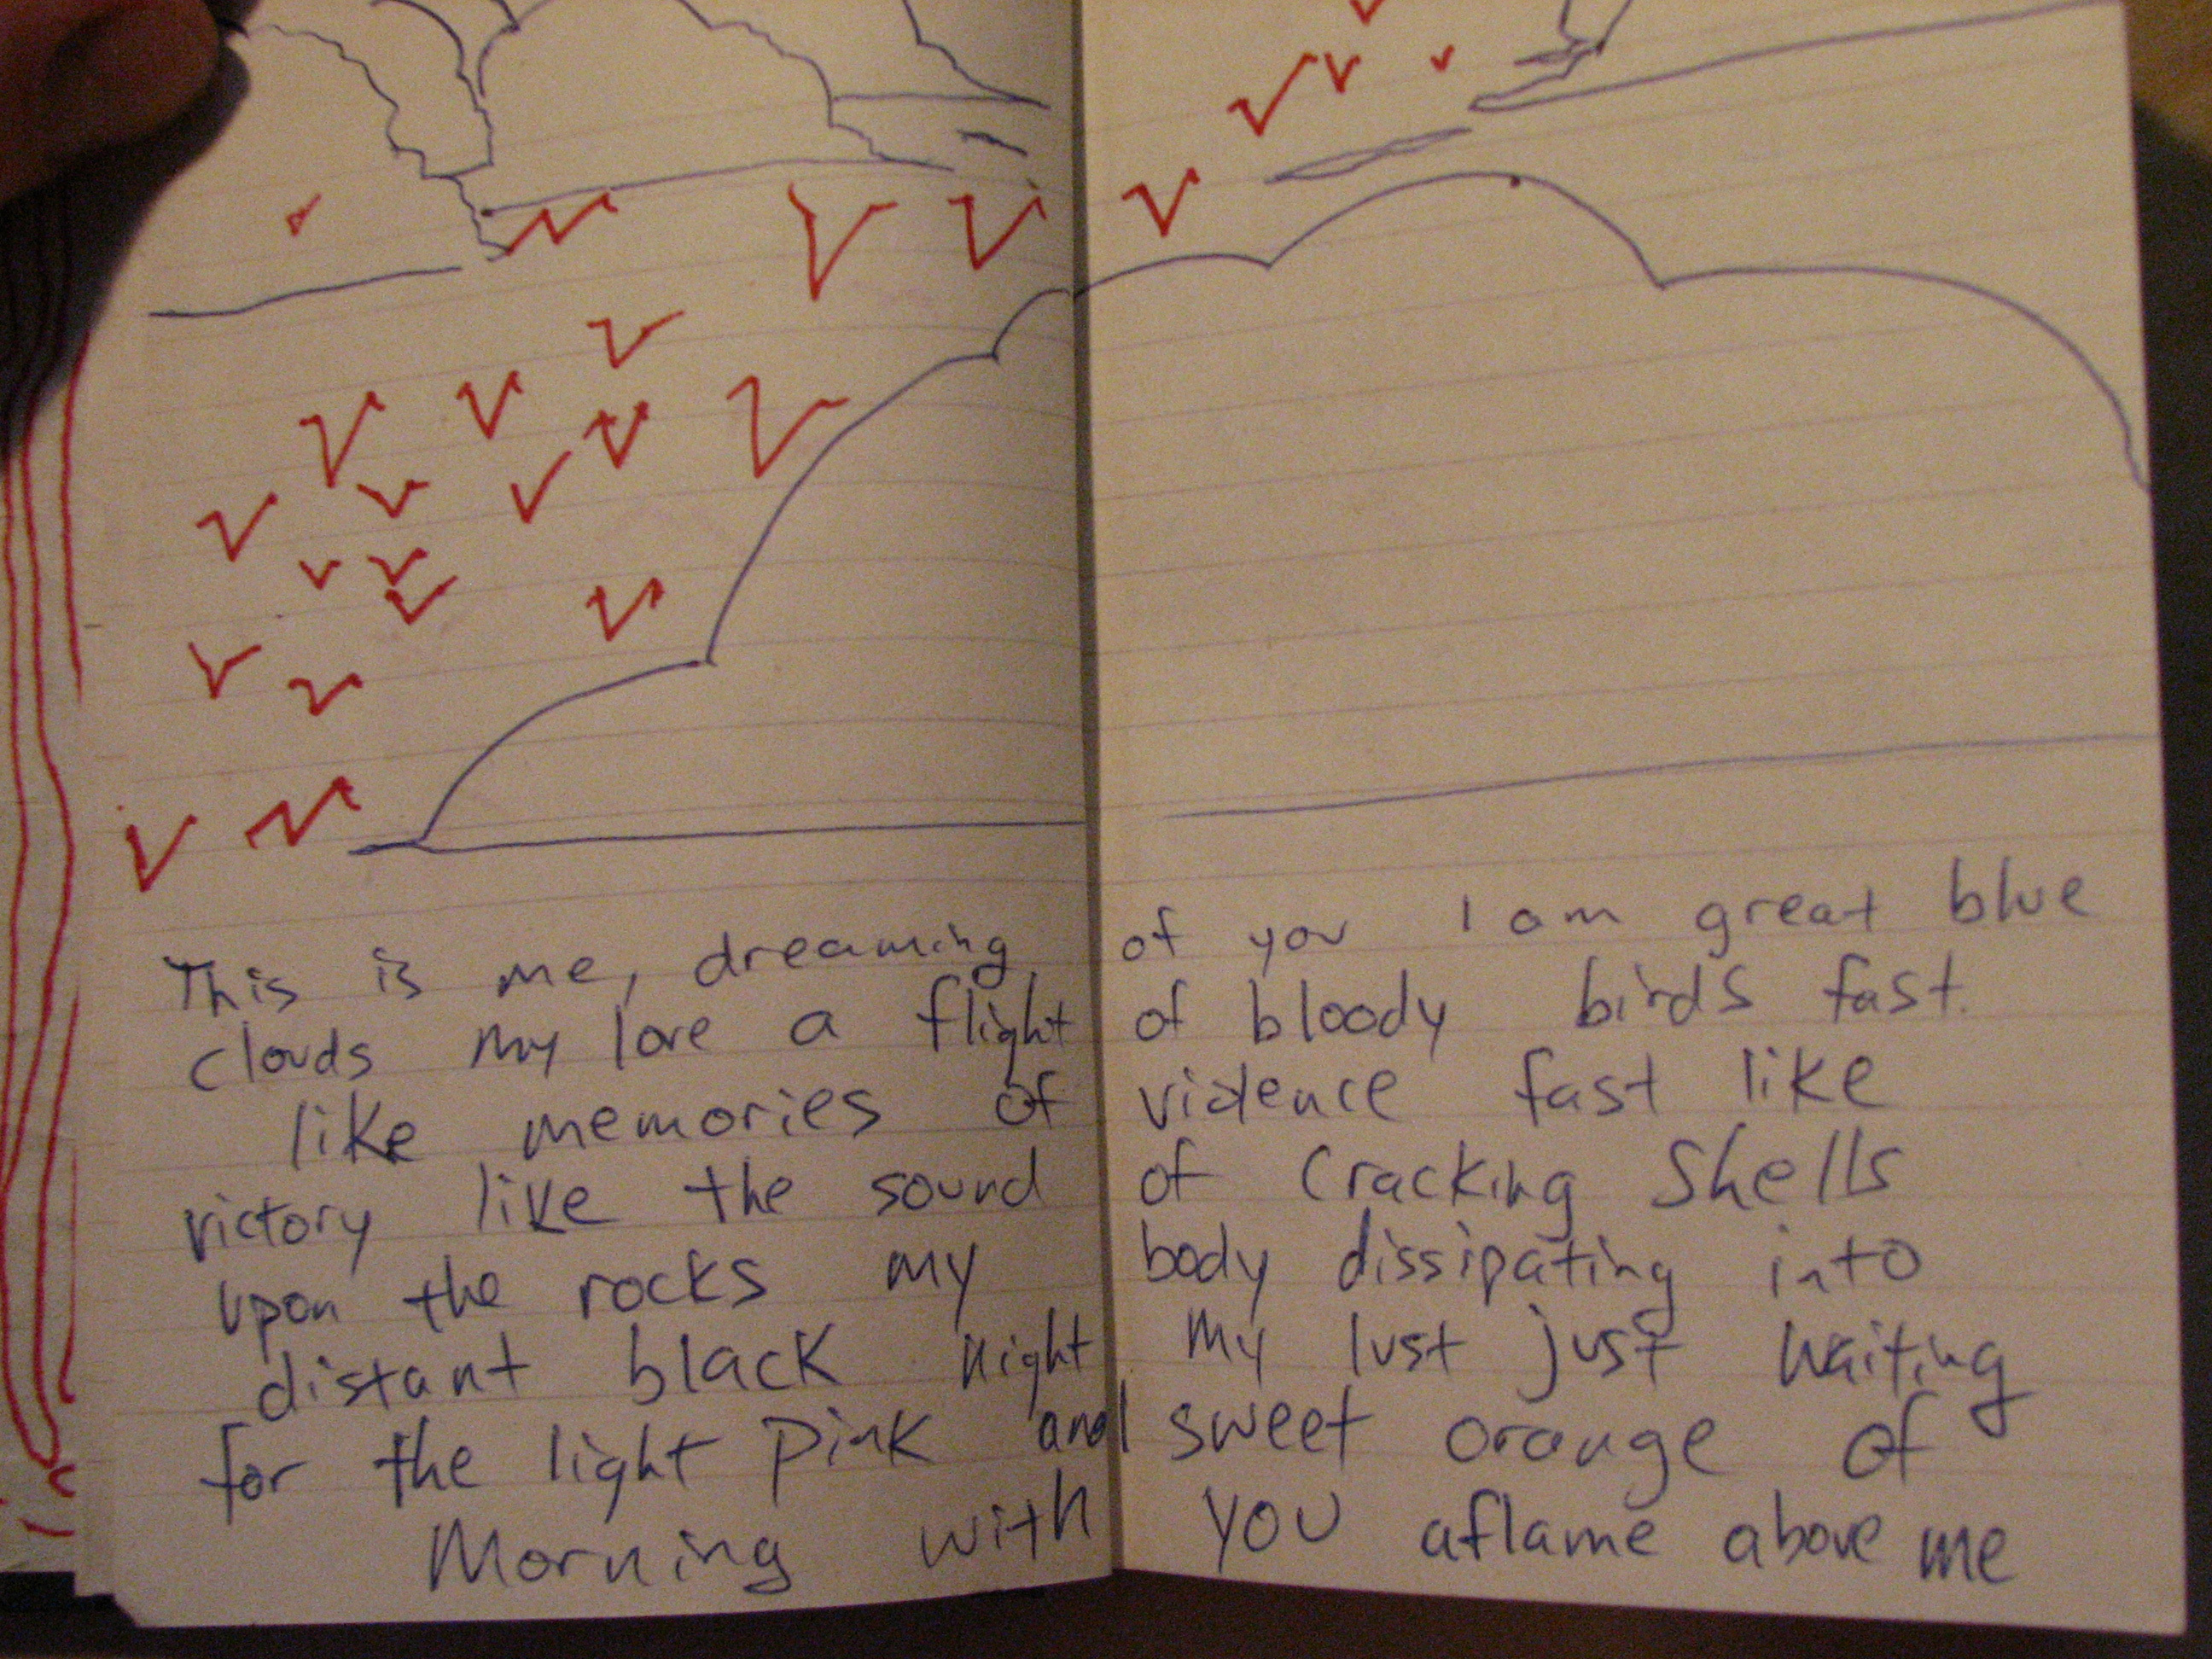 This is me, dreaming of you I am great blue
clouds my love a flight of bloody birds fast.
like memories of violence fast like
victory like the sound of cracking shells
upon the rocks my body dissipating into
distant black night my lust just waiting
for the light pink and sweet orange of
Morning with you aflame above me